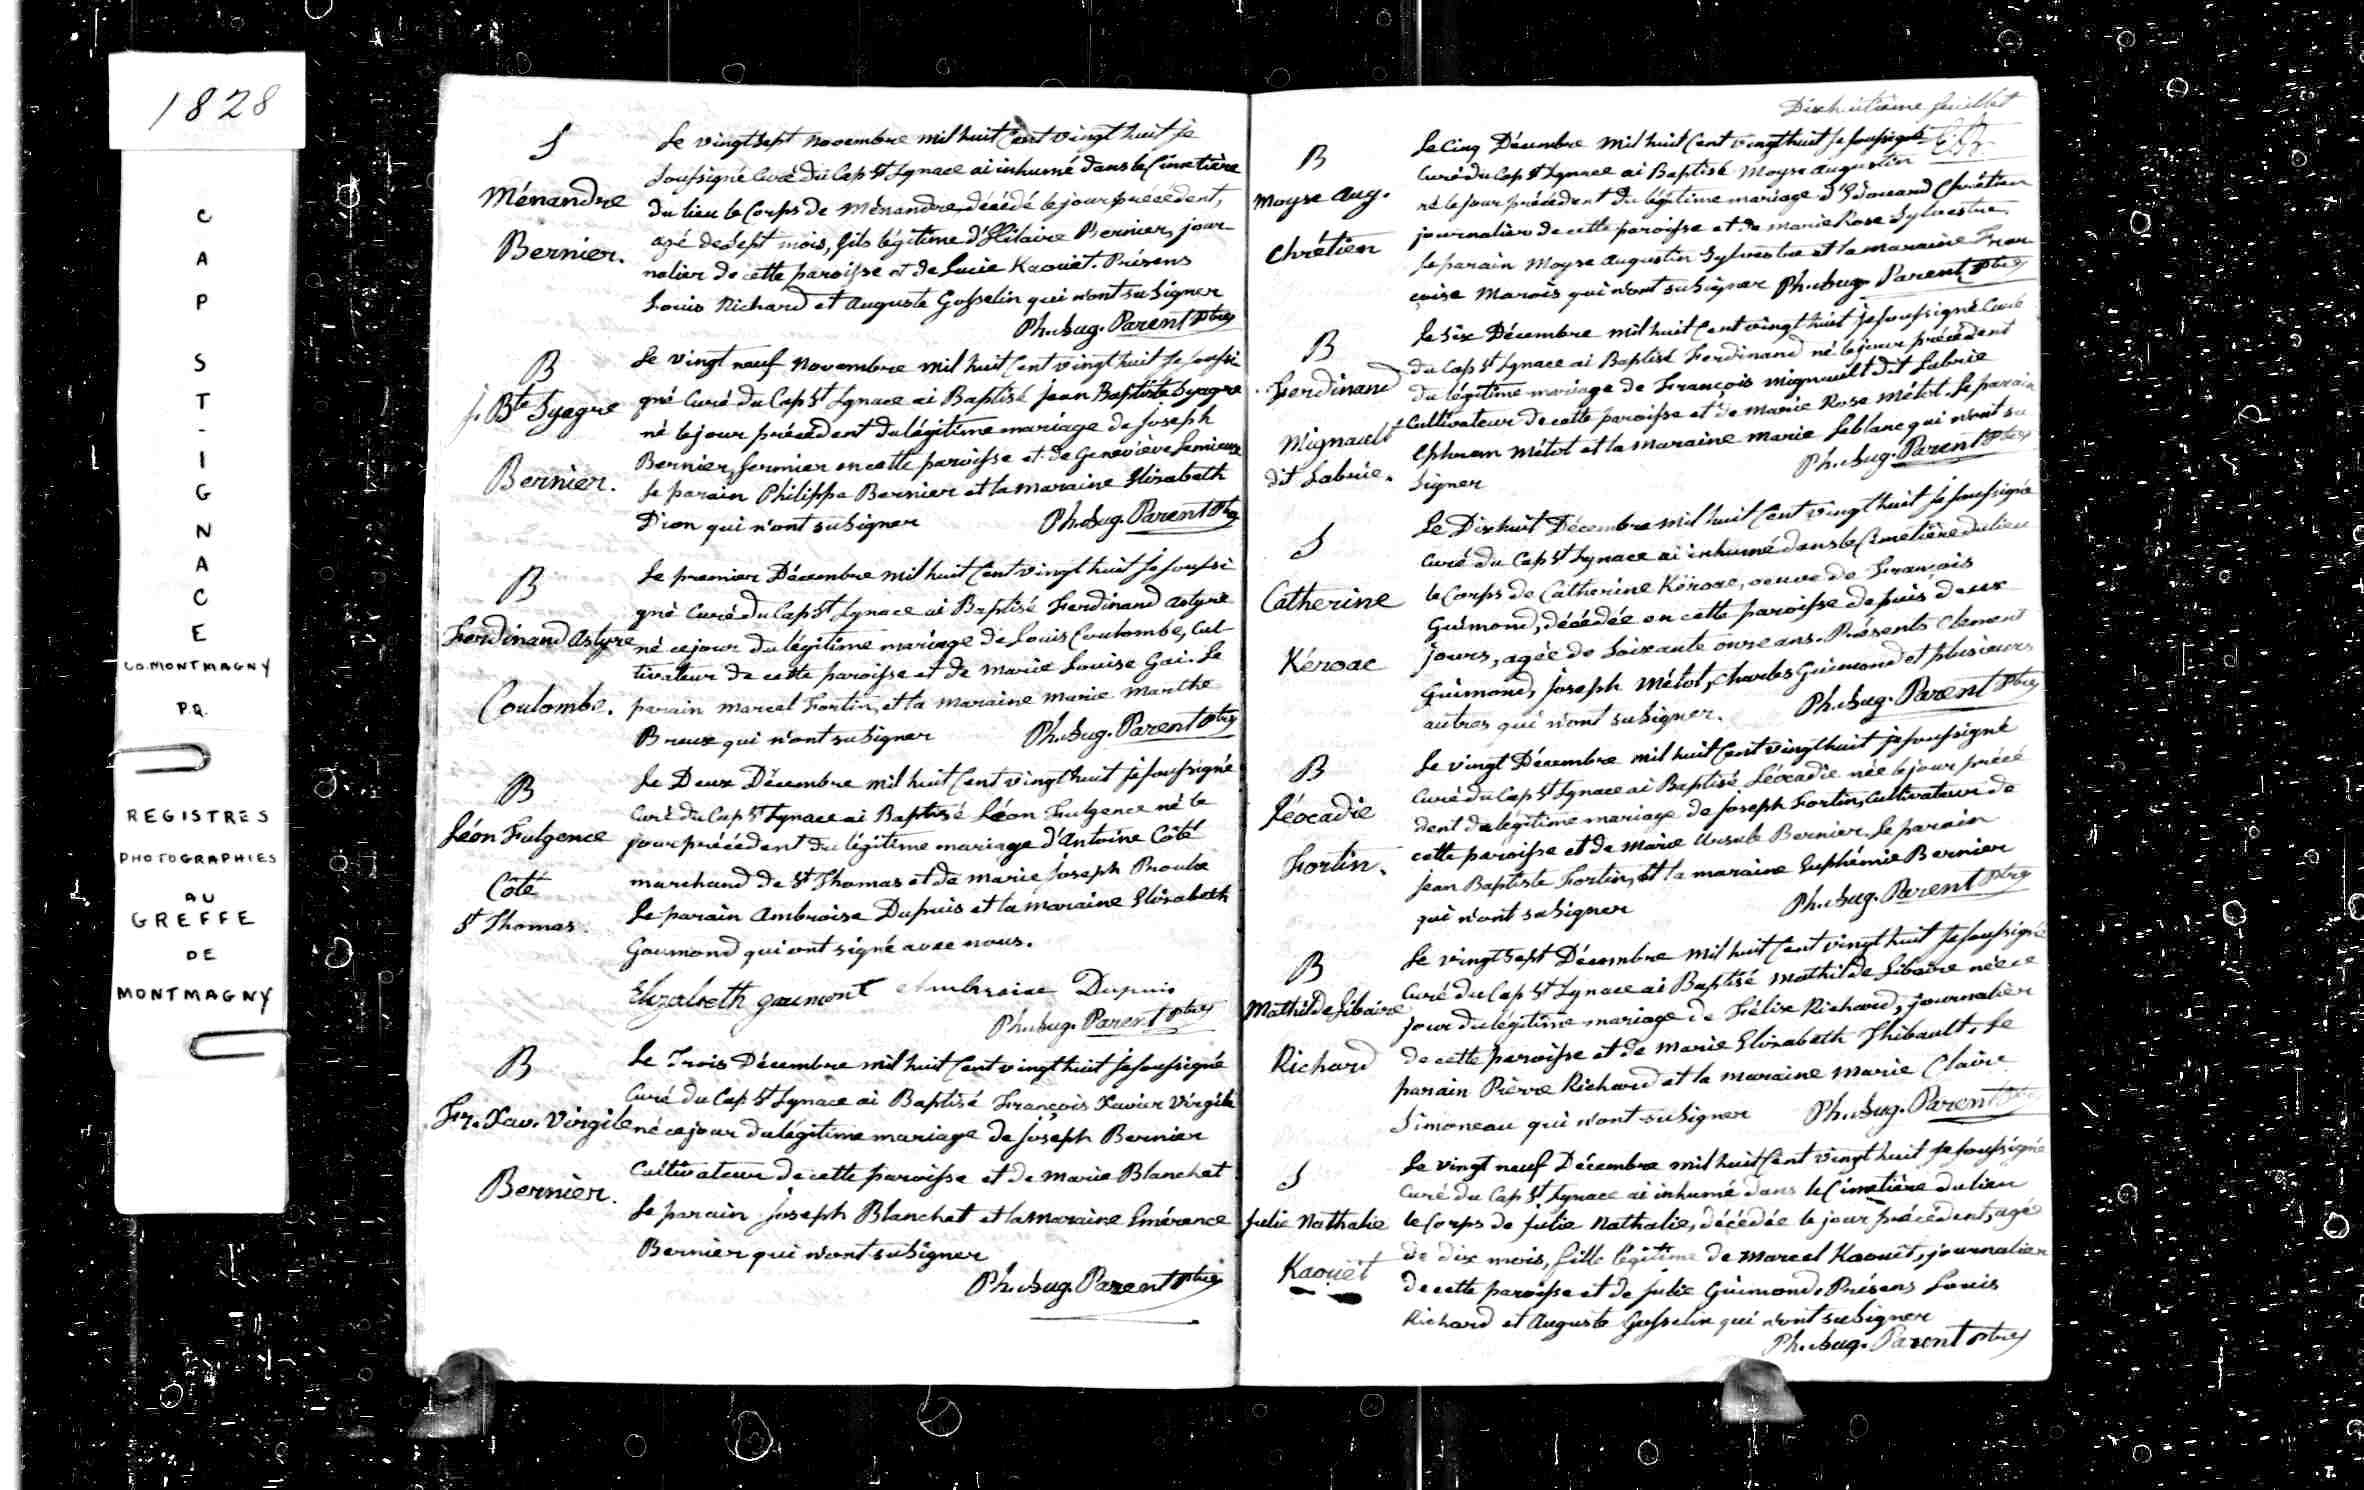 1828
CAP ST-IGNACE
CO. MONTMAGNY
P.Q.
REGISTRES
PHOTOGRAPHIES
AU
GREFFE
DE
MONTMAGNY
S
Ménandre
Bernier.
Le vingt sept novembre mil huit Cent vingt huit Je
Soussigné Curé du Cap St Ignace ai inhumé dans le Cimetière
du lieu le Corps de Ménandre, décédé le jour précédent,
agé de Sept mois, fils légitime d'Hilaire Bernier, jour
nalier de cette paroisse et de Lucie Kaouët. Présens
Louis Richard et Auguste Gosselin qui n'ont su Signer
Ph. Aug. Parent Ptre
B
J. Bte Syagre
Bernier.
Le vingt neuf novembre mil huit Cent vingt huit Je soussi
gné Curé du Cap St Ignace ai Baptisé Jean Baptiste Syagre
né le jour précédent du légitime mariage de Joseph
Bernier, fermier en cette paroisse et de Geneviève Lemieux
Le parain Philippe Bernier et la maraine Elizabeth
Dion qui n'ont su Signer
Ph. Aug. Parent Ptre
B
Ferdinand Astyre
Coulombe.
Le premier Décembre mil huit Cent vingt huit Je soussi
gné Curé du Cap St Ignace ai Baptisé Ferdinand Astyre
né ce jour du légitime mariage de Louis Coulombe, Cul-
tivateur de cette paroisse et de Marie Louise Gai. Le
parain Marcel Fortin, et la maraine Marie Marthe
Breux qui n'ont su Signer
Ph. Aug. Parent Ptre
B
Léon Fulgence
Côté
St Thomas.
Le Deux Décembre mil huit Cent vingt huit Je soussigné
Curé du Cap St Ignace ai Baptisé Léon Fulgence né le
jour précédent du légitime mariage d'Antoine Côté
marchand de St Thomas et de Marie Joseph Proulx
Le parain Ambroise Dupuis et la maraine Elizabeth
Gaumond qui ont signé avec nous.
Elizabeth gaumont Ambroise Dupuis
Ph. Aug. Parent Ptre
B
Fr. Xav. Virgile
Bernier.
Le Trois Décembre mil huit Cent vingt huit Je soussigné
Curé du Cap St Ignace ai Baptisé François Xavier Virgile
né ce jour du légitime mariage de Joseph Bernier
Cultivateur de cette paroisse et de Marie Blanchet
Le parain Joseph Blanchet et la maraine Emérence
Bernier qui n'ont su Signer
Ph. Aug. Parent Ptre
Dixhuitième feuillet
B
Moyse Aug.
Chrétien
Le Cinq Décembre mil huit Cent vingt huit Je soussigné
Curé du Cap St Ignace ai Baptisé Moyse Augustin
né le jour précédent du légitime mariage d'Edouard Chrétien
journalier de cette paroisse et de Marie Rose Sylvestre,
Le parain Moyse Augustin Sylvestre et la maraine Fran
çoise Marois qui n'ont su Signer Ph. Aug. Parent Ptre
B
Ferdinand
Mignault
dit Labrie.
Le Six Décembre mil huit Cent vingt huit Je soussigné Curé
du Cap St Ignace ai Baptisé Ferdinand né le jour précédent
du légitime mariage de François Mignault dit Labrie
Cultivateur de cette paroisse et de Marie Rose Métot. Le parain
Ephrem Métot et la maraine Marie Leblanc qui n'ont su
Signer
Ph. Aug. Parent Ptre
S
Catherine
Kéroac
Le Dixhuit Décembre mil huit Cent vingt huit Je soussigné
Curé du Cap St Ignace ai inhumé dans le Cimetière du lieu
le Corps de Catherine Kéroac, veuve de François
Guimond, décédée en cette paroisse depuis deux
jours, agée de Soixante onze ans. Présents Clement
Guimond, Joseph Métot, Charles Guimond et plusieurs
autres qui n'ont su Signer.
Ph. Aug. Parent Ptre
B
Léocadie
Fortin.
Le vingt Décembre mil huit Cent vingt huit je soussigné
Curé du Cap St Ignace ai Baptisé Léocadie née le jour précé
dent du légitime mariage de Joseph Fortin, Cultivateur de
cette paroisse et de Marie Ursule Bernier. Le parain
Jean Baptiste Fortin, et la maraine Euphémie Bernier
qui n'ont su Signer
Ph. Aug. Parent Ptre
B
Mathilde Libaire
Richard
Le vingt Sept Décembre mil huit Cent vingt huit Je soussigné
Curé du Cap St Ignace ai Baptisé Mathilde Libaire née ce
jour du légitime mariage de Félix Richard, journalier
de cette paroisse et de Marie Elizabeth Thibault. Le
parain Pièrre Richard et la maraine Marie Claire
Simoneau qui n'ont su Signer
Ph. Aug. Parent Ptre
S
Julie Nathalie
Kaouët
Le vingt neuf Décembre mil huit Cent vingt huit Je soussigné
Curé du Cap St Ignace ai inhumé dans le Cimetière du lieu
le Corps de Julie Nathalie, décédée le jour précédent, agé
de dix mois, fille légitime de Marcel Kaouët, journalier
de cette paroisse et de Julie Guimond. Présens Louis
Richard et Auguste Gosselin qui n'ont su Signer
Ph. Aug. Parent Ptre